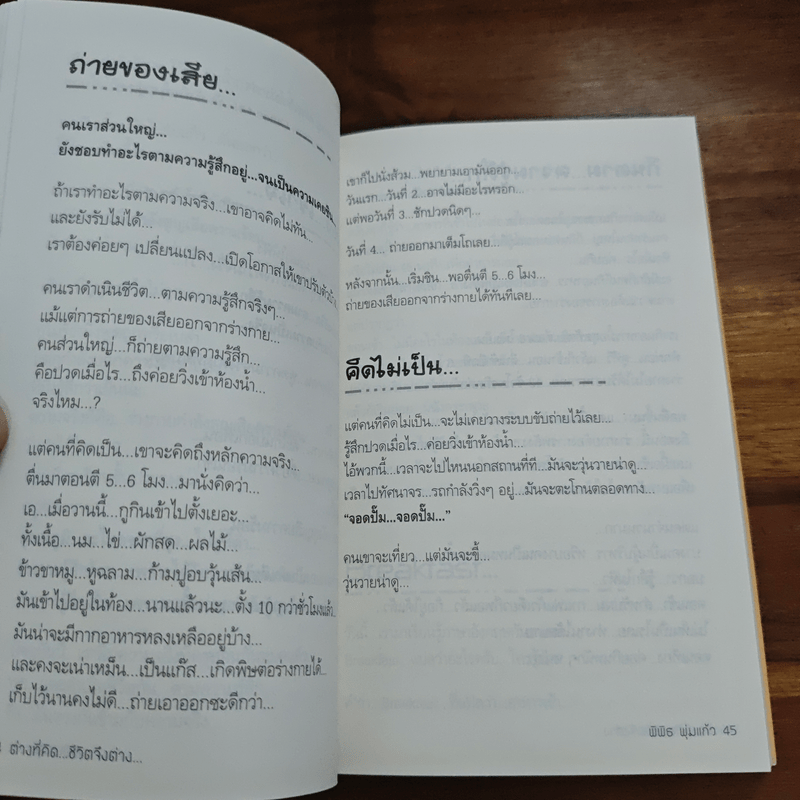 ถ่ายของเสีย...
คนเราส่วนใหญ่...
ยังชอบทำอะไรตามความรู้สึกอยู่...จนเป็นความเคยชิน...
ถ้าเราทำอะไรตามความจริง...เขาอาจคิดไม่ทัน...
และยังรับไม่ได้...
เราต้องค่อยๆ เปลี่ยนแปลง...เปิดโอกาสให้เขาปรับตัวบ้าง
คนเราดำเนินชีวิต...ตามความรู้สึกจริงๆ...
แม้แต่การถ่ายของเสียออกจากร่างกาย...
คนส่วนใหญ่...ก็ถ่ายตามความรู้สึก...
คือปวดเมื่อไร...ถึงค่อยวิ่งเข้าห้องน้ำ...
จริงไหม...?
แต่คนที่คิดเป็น...เขาจะคิดถึงหลักความจริง...
ตื่นมาตอนตี 5...6 โมง...มานั่งคิดว่า...
เอ...เมื่อวานนี้...กูกินเข้าไปตั้งเยอะ...
ทั้งเนื้อ...นม...ไข่...ผักสด...ผลไม้...
ข้าวขาหมู...หูฉลาม...ก้ามปูอบวุ้นเส้น...
มันเข้าไปอยู่ในท้อง...นานแล้วนะ...ตั้ง 10 กว่าชั่วโมงแล้ว...
มันน่าจะมีกากอาหารหลงเหลืออยู่บ้าง...
และคงจะเน่าเหม็น...เป็นแก๊ส...เกิดพิษต่อร่างกายได้...
เก็บไว้นานคงไม่ดี...ถ่ายเอาออกซะดีกว่า...
ต่างที่คิด...ชีวิตจึงต่าง...
เขาก็ไปนั่งส้วม...พยายามเอามันออก
วันแรก...วันที่ 2...อาจไม่มีอะไรหรอก...
แต่พอวันที่ 3...ชักปวดนิดๆ...
วันที่ 4... ถ่ายออกมาเต็มโถเลย...
หลังจากนั้น...เริ่มชิน...พอตื่นตี 5...6 โมง...
ถ่ายของเสียออกจากร่างกายได้ทันทีเลย...
คิดไม่เป็น...
แต่คนที่คิดไม่เป็น...จะไม่เคยวางระบบขับถ่ายไว้เลย...
รู้สึกปวดเมื่อไร...ค่อยวิ่งเข้าห้องน้ำ...
ไอ้พวกนี้...เวลาจะไปไหนนอกสถานที่ที...มันจะวุ่นวายน่าดู...
เวลาไปทัศนาจร...รถกำลังวิ่งๆ อยู่...มันจะตะโกนตลอดทาง...
“จอดปั๊ม...จอดปั๊ม...”
คนเขาจะเที่ยว...แต่มันจะขี้...
วุ่นวายน่าดู...
พิพิธ พุ่มแก้ว 45